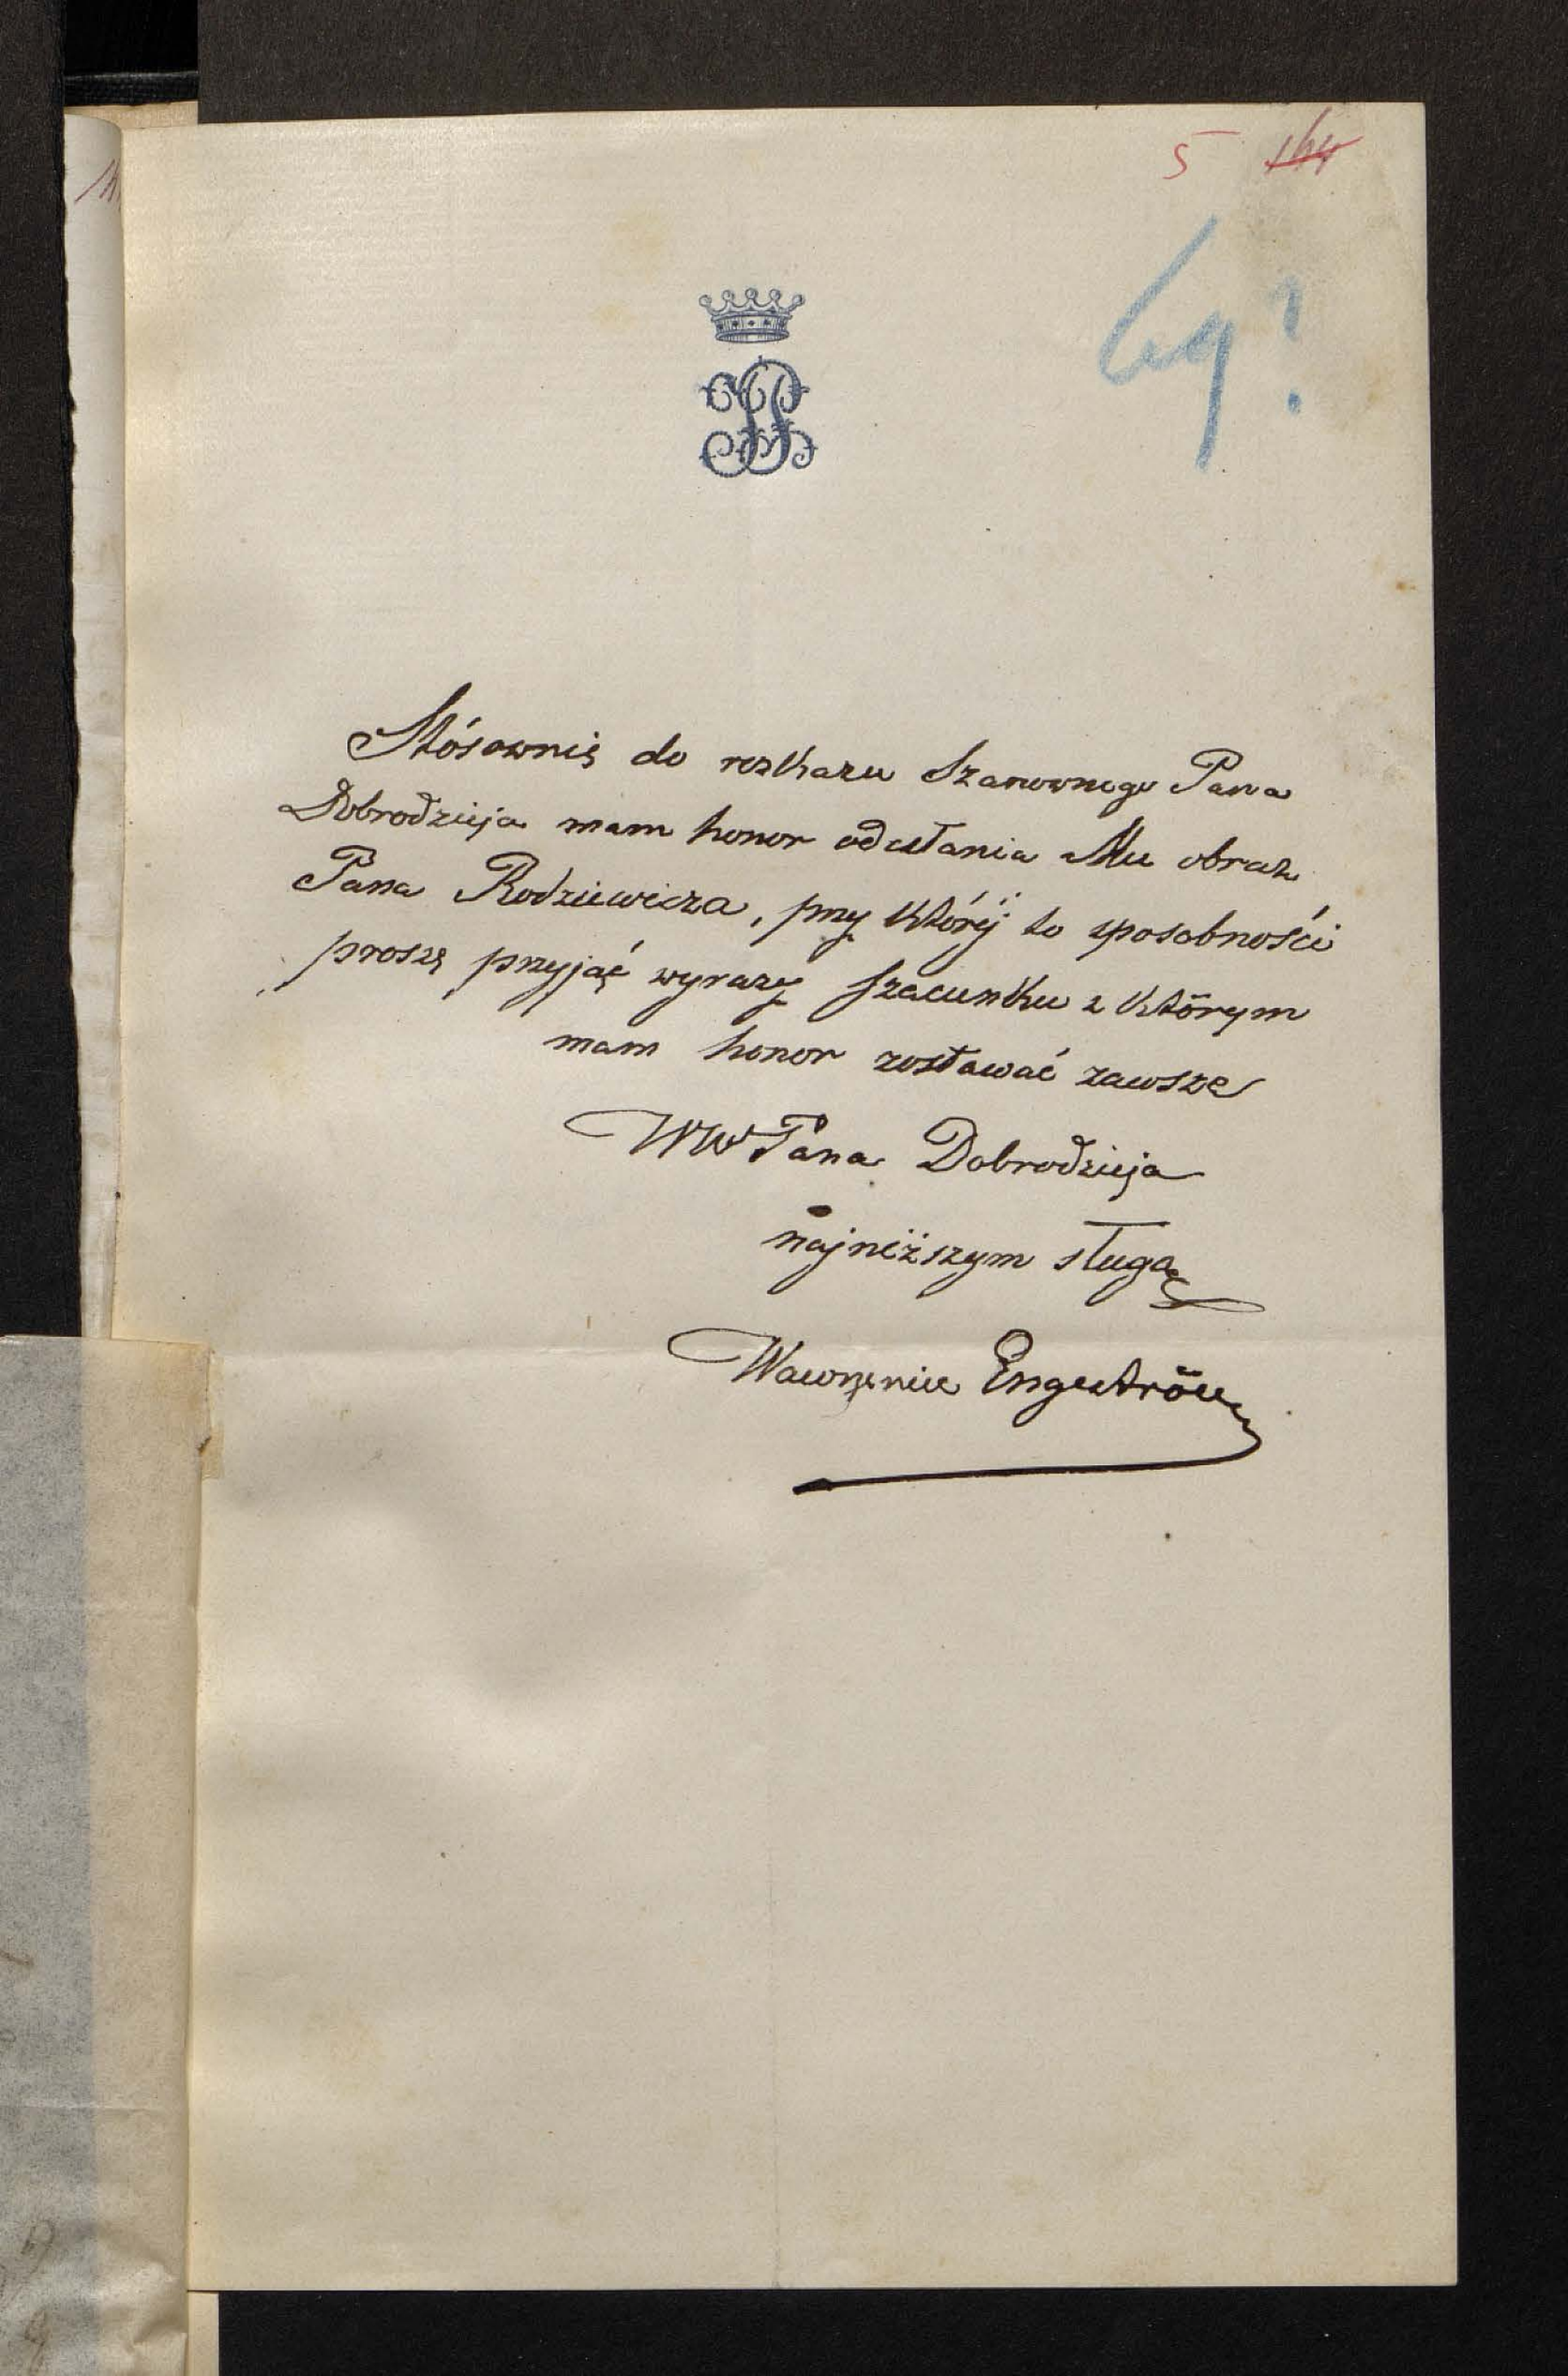 5 164
69?
Stósownie do rozkazu Szanownego Pana
Dobrodzieja mam honor odesłania Mu obraz
Pana Rodziewicza, przy któréj to sposobności
proszę przyjąć wyrazy szacunku z którym
mam honor zostawać zawsze
WW Pana Dobrodzieja
najniższym sługą
Wawrzeniec Engeström